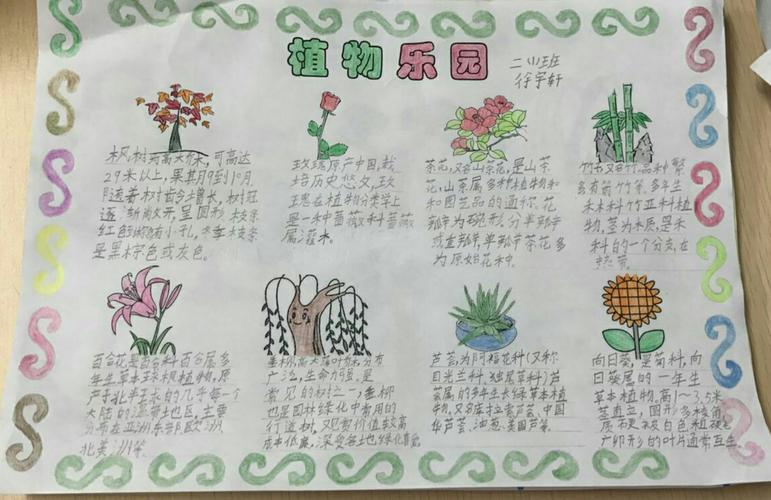 植物乐园
二(1)班
徐宇轩
枫树为高大乔木，可高达
29米以上，果其月9到10月
随着树龄增长，树冠
逐渐敞开，呈圆形 枝条
红色 有小孔，冬季枝条
是黑棕色或灰色。
玫瑰原产中国，栽
培历史悠久，玫
瑰在植物分类学上
是一种蔷薇科蔷薇
属灌木。
茶花，又名山茶花，是山茶
花，山茶属多种植物和
和园艺品的通称，花
瓣为碗形，分单瓣
或重瓣，单瓣茶花多
为原始花种。
竹 又名竹 品种繁
多有箭竹等，多年生
木本科竹亚科植
物，茎为木质，是禾
科的一个分支，在
热带。
百合花是百合科百合属多
年生草本球根植物，原
产于北半球的几乎每一个
大陆的温带地区，主要
分布在亚洲东部欧洲
北美洲等。
垂柳，高大落叶乔木，分布
广泛，生命力强，是
常见的树之一，垂柳
也是园林绿化中常用的
行道树，观赏价值较高
成本低廉，深受各地绿化喜爱
芦荟，为阿福花科（又称
日光兰科、独尾草科）芦
荟属的多年生常绿草本植
物，又名库拉索芦荟、中国
华芦荟、油葱、美国芦荟。
向日葵，是菊科，向
日葵属的一年生
草本植物，高1～3.5米
茎直立，圆形多棱角
质 被白色粗硬毛
广卵形的叶片通常互生